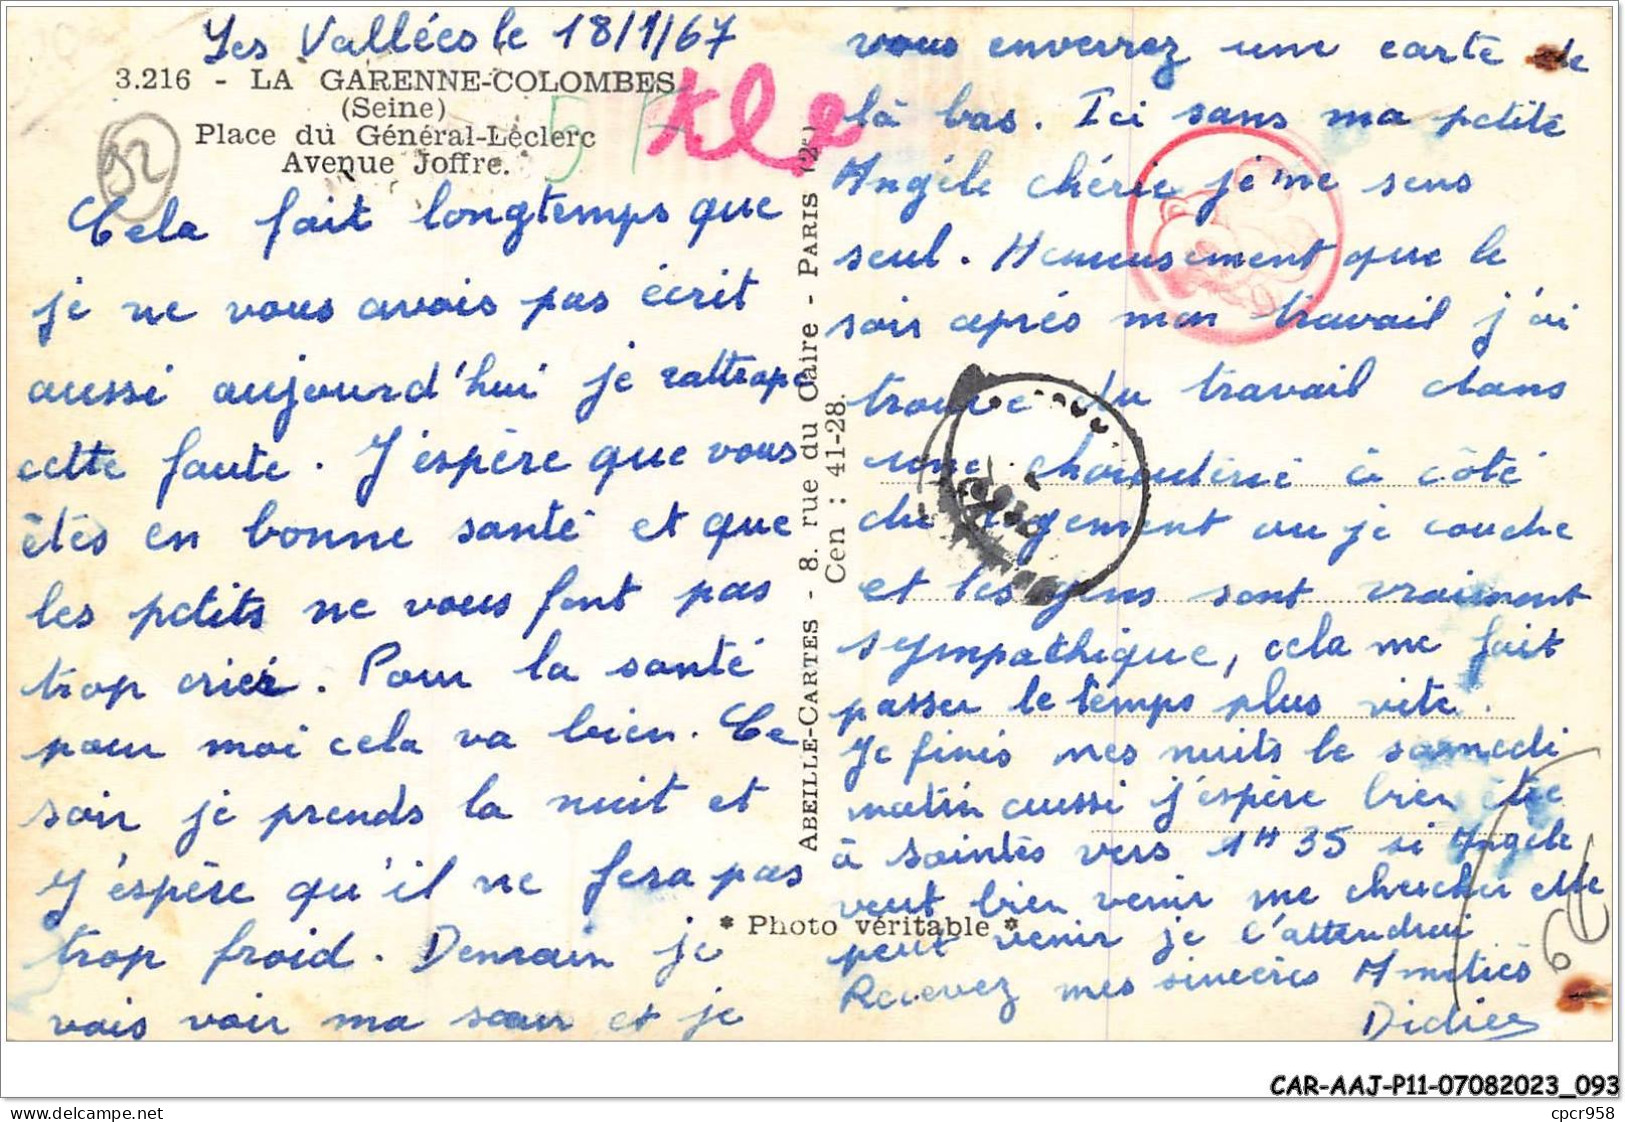 Les Vallées le 18/1/67
3.216 - LA GARENNE-COLOMBES
(Seine)
Place du Général-Leclerc
Avenue Joffre.
92
Cela fait longtemps que
je ne vous avais pas écrit
aussi aujourd'hui je rattrape
cette faute. J'espère que vous
êtes en bonne santé et que
les petits ne vous font pas
trop crier. Pour la santé
pour moi cela va bien. Ce
soir je prends la nuit et
J'espère qu'il ne fera pas
trop froid. Demain je
vais voir ma sœur et je
ABEILLE-CARTES - 8, rue du Caire - PARIS (2e)
Cen : 41-28.
* Photo véritable *
vous enverrez une carte de
là bas. Ici sans ma petite
Angèle chérie je me sens
seul. Heureusement que le
soir après mon travail j'ai
trouve du travail dans
une à côté
du logement ou je couche
et les gens sont vraiment
sympathique, cela me fait
passer le temps plus vite.
Je finis mes nuits le samedi
matin aussi j'espère bien être
à Saintes vers 1H35 si Angèle
veut bien venir me chercher elle
peut venir je l'attendrai
Recevez mes sincères Amitiés
Didier
CAR-AAJ-P11-07082023_093
delcampe.net
cpcr958